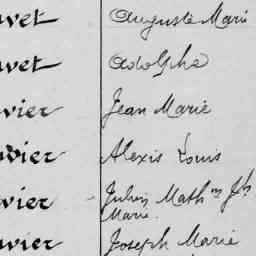 uvet Auguste Marie
uvet Adolphe
vier Jean Marie
vier Alexis Louis
vier Julien Math^in J^h
Marie.
vier Joseph Marie